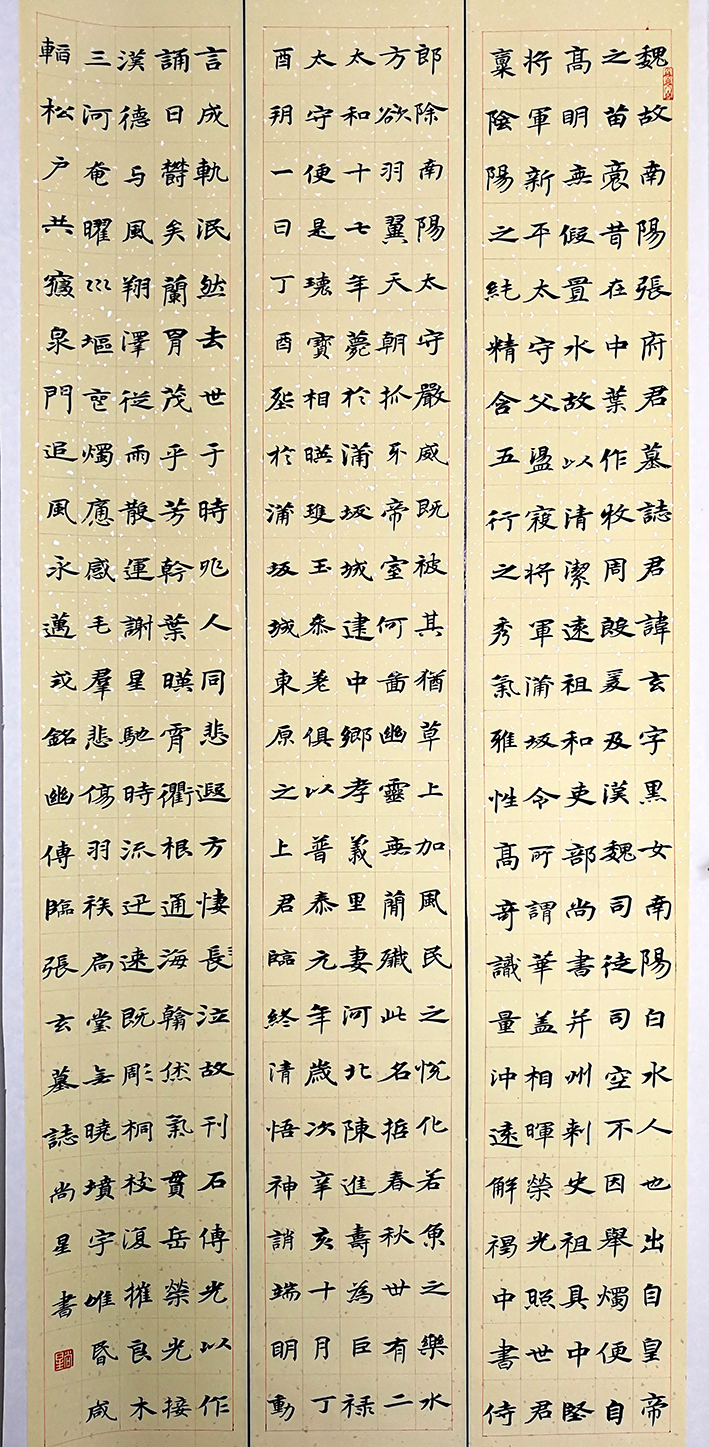 魏故南陽張府君墓誌君諱玄字黑女南陽白水人也出自皇帝
之苗裔昔在中葉作牧周殷爰及漢魏司徒司空不因舉燭便自
高明無假置水故以清潔遠祖和吏部尚書并州刺史祖具中堅
將軍新平太守父盪寇將軍蒲坂令所謂華蓋相暉榮光照世君
稟陰陽之純精含五行之秀氣雅性高奇識量沖遠解褐中書侍
郎除南陽太守嚴威既被其猶草上加風民之悅化若魚之樂水
方欲羽翼天朝抓牙帝室何啚幽靈無蕑殲此名哲春秋卅有二
太和十七年薨於蒲坂城建中鄉孝義里妻河北陳進壽為巨祿
太守便是瓌寶相暎雙玉參差俱以普泰元年歲次辛亥十月丁
酉朔一日丁酉塟於蒲坂城東原之上君臨終清悟神誚端明動
言成軌泯然去世于時兆人同悲遐方悽長泣故刊石傳光以作
誦曰欝矣蘭胄茂乎芳幹葉暎霄衢根通海翰倐氣貫岳榮光接
漢德与風翔澤從雨散運謝星馳時流迅速既彫桐枝復摧良木
三河奄曜巛堰喪燭痛感毛羣悲傷羽族扃堂無曉墳宇唯昏咸
韜松戶共寢泉門追風永邁式銘幽傳臨張玄墓誌尚星書